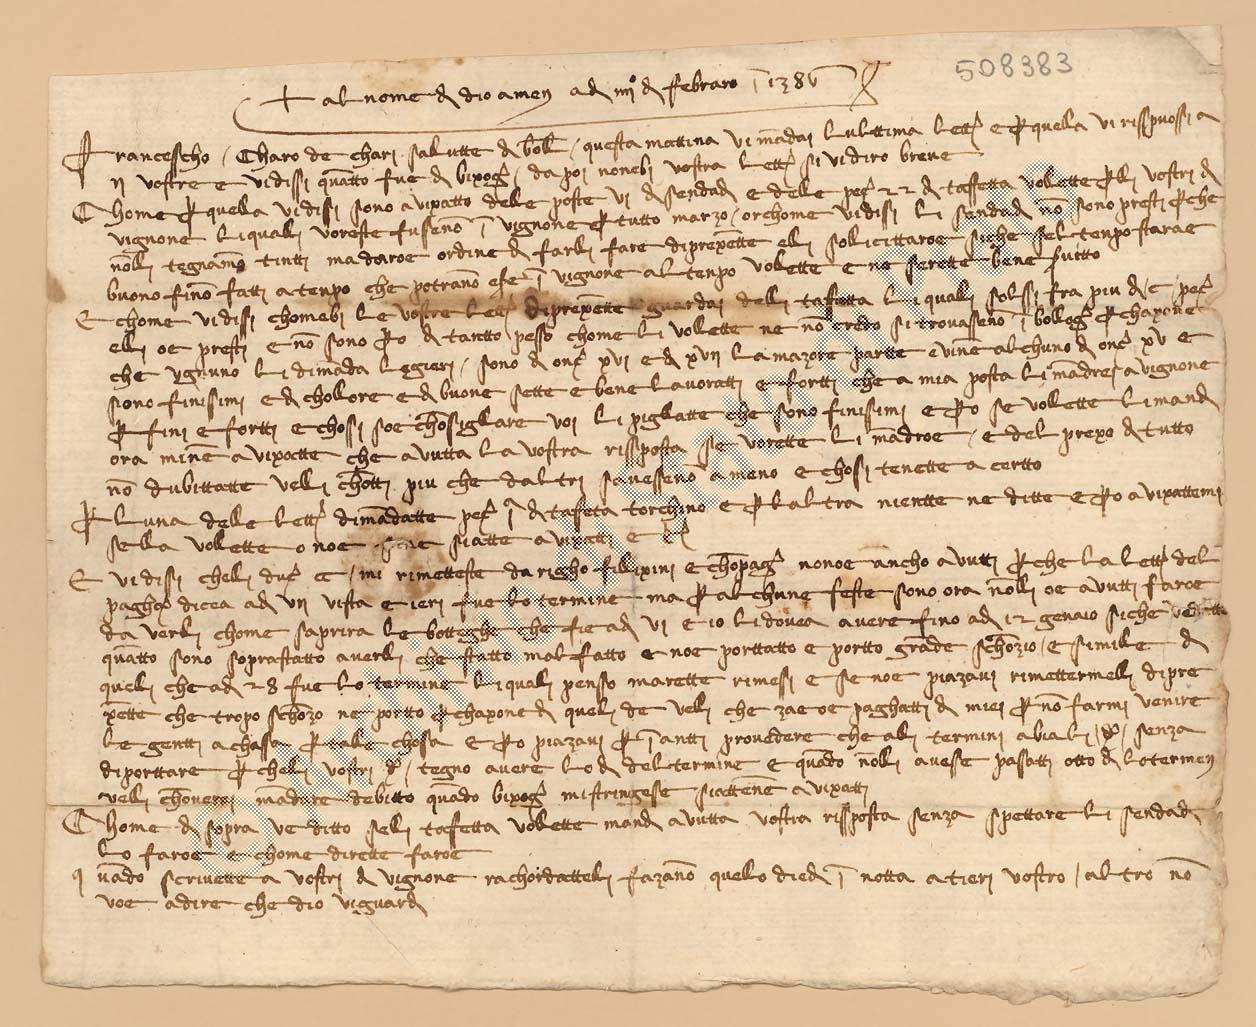 508383
+ al nome d dio amen adj iiijº d febraro ī 1386
Francesscho Charo de chari salutte d bol questa mattina vi mādai lulttima lettª e p quella vi risspuossi a
ij vostre e vi dissi quātto fue d bixogº da poi nonebi vostra lettª si vi diro breve
Chome p quella vi dissi sono avixatto delle poste vi d sendadj e delle peçº 22 d taffetta volette p li vostri d
vignone li quali voreste fusseno ī vignone p tutto marzo or chome vi dissi li sendadj nō sono presti p che
nolli tegnamo tintti ma daroe ordine d farli fare di prexētte elli sollicittaroe siche sel tenpo starae
buono fino fatti a tenpo che potrano ese ī vignone al tenpo volette e ne serette bene sutto
E chome vi dissi chomebi le vostre lettª di prexētte guardai delli taffetta li quali solssi fra piu d c peçº
elli oe presti e nō sono po d tantto pesso chome li vollette ne nō credo si trovasseno ī bollogª p chaxone
che ugnuno li dimāda legieri sono d onç xvi e d xvii la mazore partte e vine alchuno d onç xv e
siono finissimi e d chollore e d buone sette e bene lavoratti e fortti che a mia posta li mādrei a vignone
p fini e fortti e chossi soe chōsigliare voi li pigliatte che sono finissimi e po se vollette li mandj
ora mine avixatte che avutta la vostra rissposta se vorette li mādroe e del prexo d tutto
nō dubittatte velli chōtti piu che daltri savesseno a meno e chosi tenette a certto
P luna delle lettª dimādatte peçª jª d tafeta torchino e p laltra nientte ne ditte e po avixattemi
sella vollette o noe siatte avixatti e cª
E vi dissi cheli ducª cc mi rimetteste da righo fillixini e chōpagª nonoe ancho avutti p che la lettª del
paghº dicea adj vij vista e ieri fue lo termine ma p alchune feste sono ora nolli oe avutti faroe
daverli chome saprira le botteghe che fie adj vi e io li dovea avere fino adj 12 genaio siche
quātto sono soprastatto averli che statto mal fatto e noe porttatto e portto grāde schōzio e simile d
queli che adj 28 fue lo termine li quali penso marette rimesi e se noe piazavi rimettermelli di pre
xētte che tropo schōzo ne portto p chaxone d queli de veli che zae oe paghatti d miei p nō farmi venire
le gentti a chassa p tale chosa e po piazavi p ī antti provedere che ali termini abia li dº senza
diporttare p cheli vostri dº tegno avere lo dj del termine e quādo nolli avese pasatti otto dj lo termen
velli chōverei mādare debitto quādo bixogº mi stringese siattene avixatti
Chome d sopra ve ditto seli taffetta vollette mandj avutta vostra rissposta senza spettare li sendadj
lo faroe e chome dirette faroe
quādo scrivette a vostri d vignone rachordatteli fazano quello diedj ī notta a tieri vostro altro nō
voe a dire che dio vi guardj